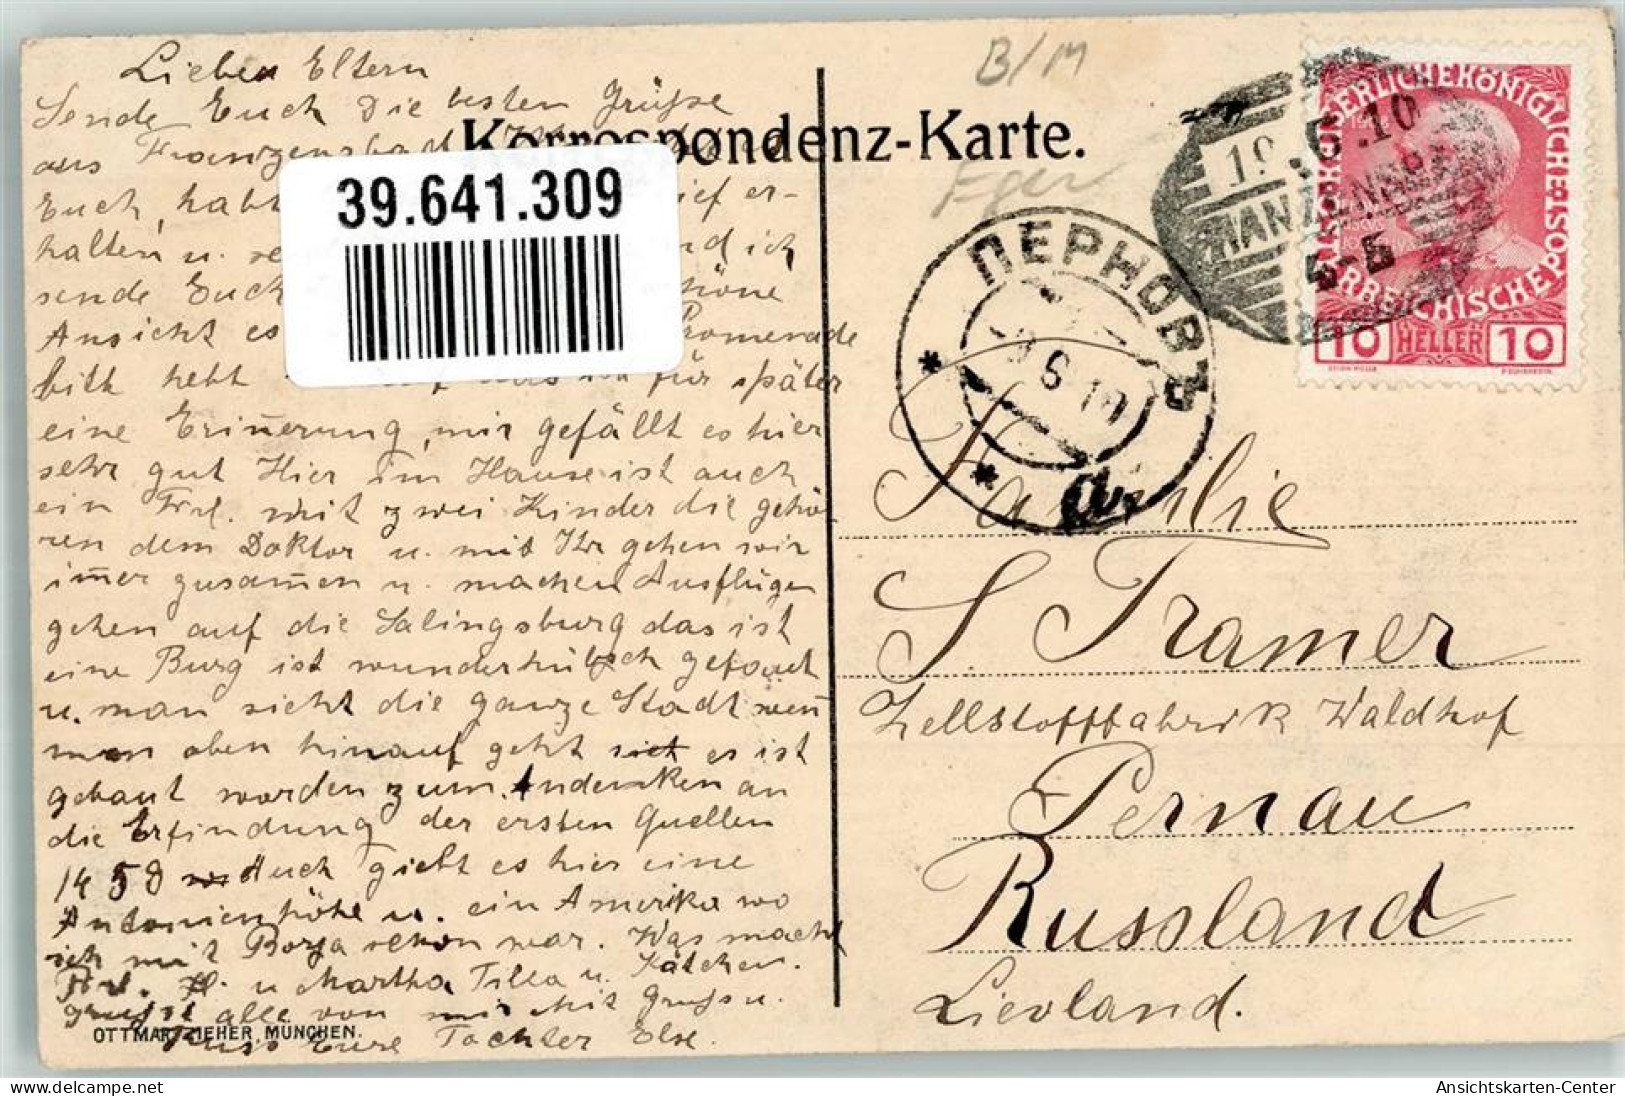 Lieben Eltern
Sende Euch die besten Grüße
aus Franzensbad
Euch, habe ief er-
halten u. nd ich
sende Euch höne
Ansicht es Promenade
bitte hebt für später
eine Erin̄erung, mir gefällt es hier
sehr gut Hier im Hause ist auch
ein Frl. mit zwei Kinder die gehö-
ren dem Doktor u. mit Ihr gehen wir
im̄er zusam̄en u. machen Ausflügen
gehen auf die Salingsburg das ist
eine Burg ist wunderhübsch gebaut
u. man sieht die ganze Stadt wen̄
man oben hinauf geht es ist
gebaut worden zum Andenken an
die Erfindung der ersten Quellen
14 Auch giebt es hier eine
Antonienhöhe u. ein Amerika wo
ich mit Borja schon war. Was macht
Frl. H. u Martha Tilla u. Kätchen.
grüsst alle von mir Mit Gruss u.
Kuss Eure Tochter Else.
OTTMAR ZIEHER, MÜNCHEN.
39.641.309
Korrespondenz-Karte.
B/M
Eger
ПЕРНОВЪ
9 6 10
19.6.10
FRANZENSBAD
KAISERLICHE KÖNIGLICHE
ÖSTERREICHISCHE POST
10 HELLER 10
Familie
S. Tramer
Zellstofffabrik Waldhof
Pernau
Russland
Lievland.
Ansichtskarten-Center